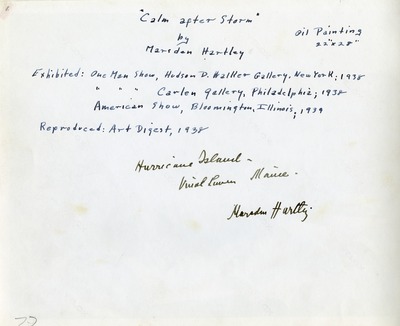 "Calm after Storm"
by
Marsden Hartley
Oil Painting
22"x28"
Exhibited: One Man Show, Hudson D. Walker Gallery, New York; 1938
" " " Carlen Gallery, Philadelphia; 1938
American Show, Bloomington, Illinois; 1939
Reproduced: Art Digest, 1938
Hurricane Island –
Vinal Haven Maine –
Marsden Hartley